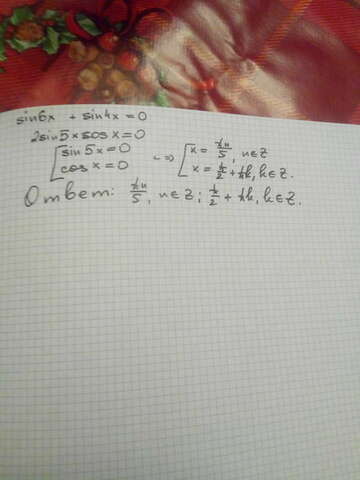 sin6x + sin4x = 0
2sin5x cosx = 0
[ sin5x = 0 => [ x = πn/5, n∈Z
cosx = 0 x = π/2 + πk, k∈Z.
Ответ: πn/5, n∈Z; π/2 + πk, k∈Z.